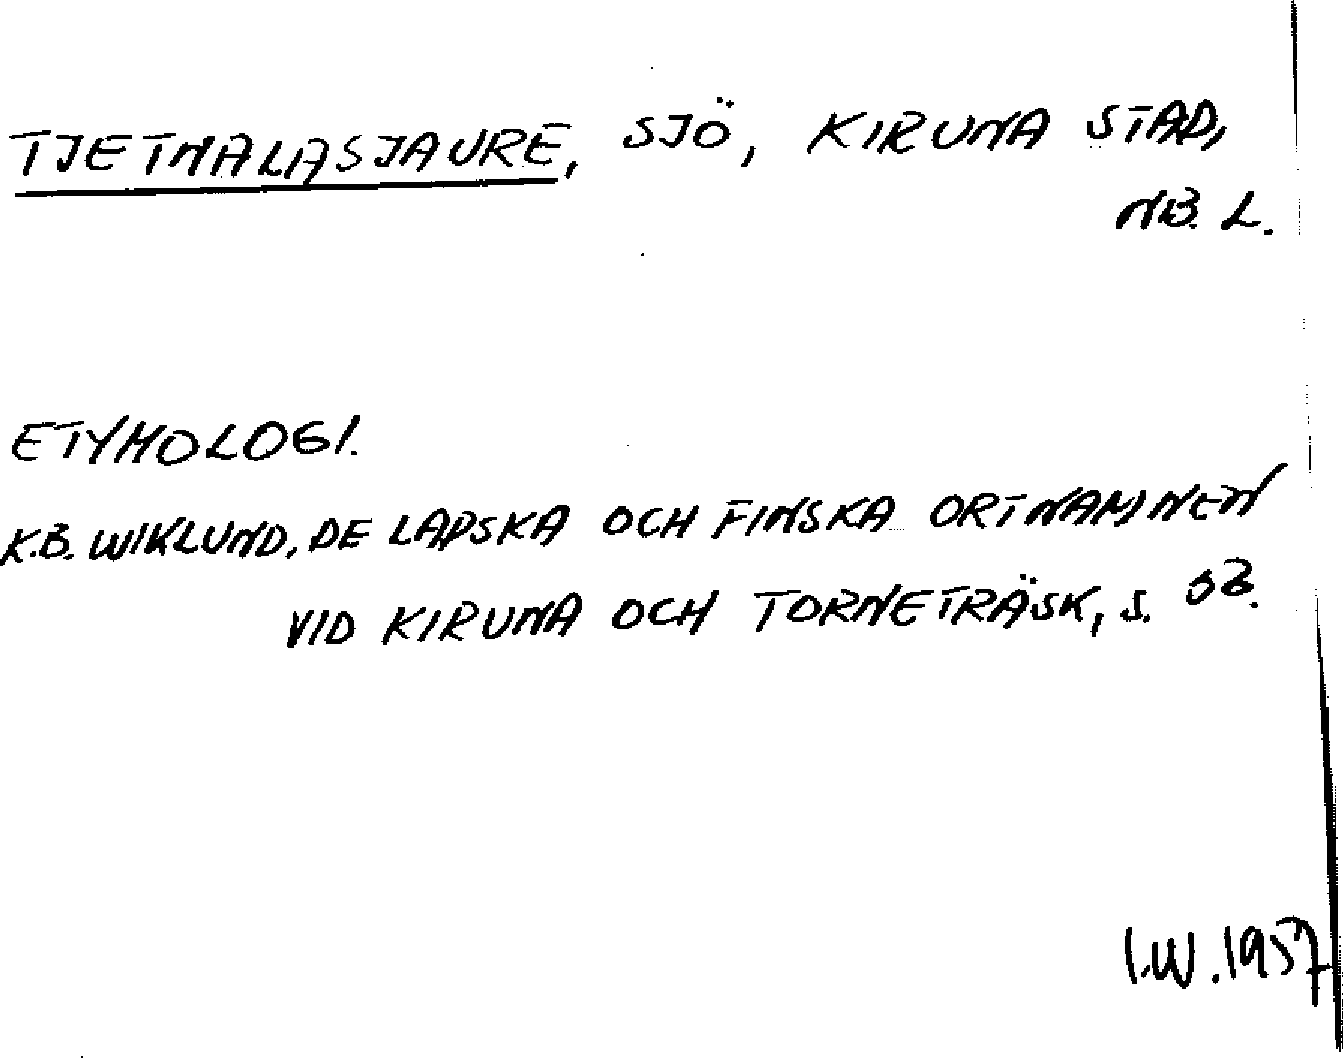 TJETNALASJAURE, SJÖ, KIRUNA STAD,
NB. L.
ETYMOLOGI.
K.B. WIKLUND, DE LAPSKA OCH FINSKA ORTNAMNEN
VID KIRUNA OCH TORNETRÄSK, S.
I.W. 1957